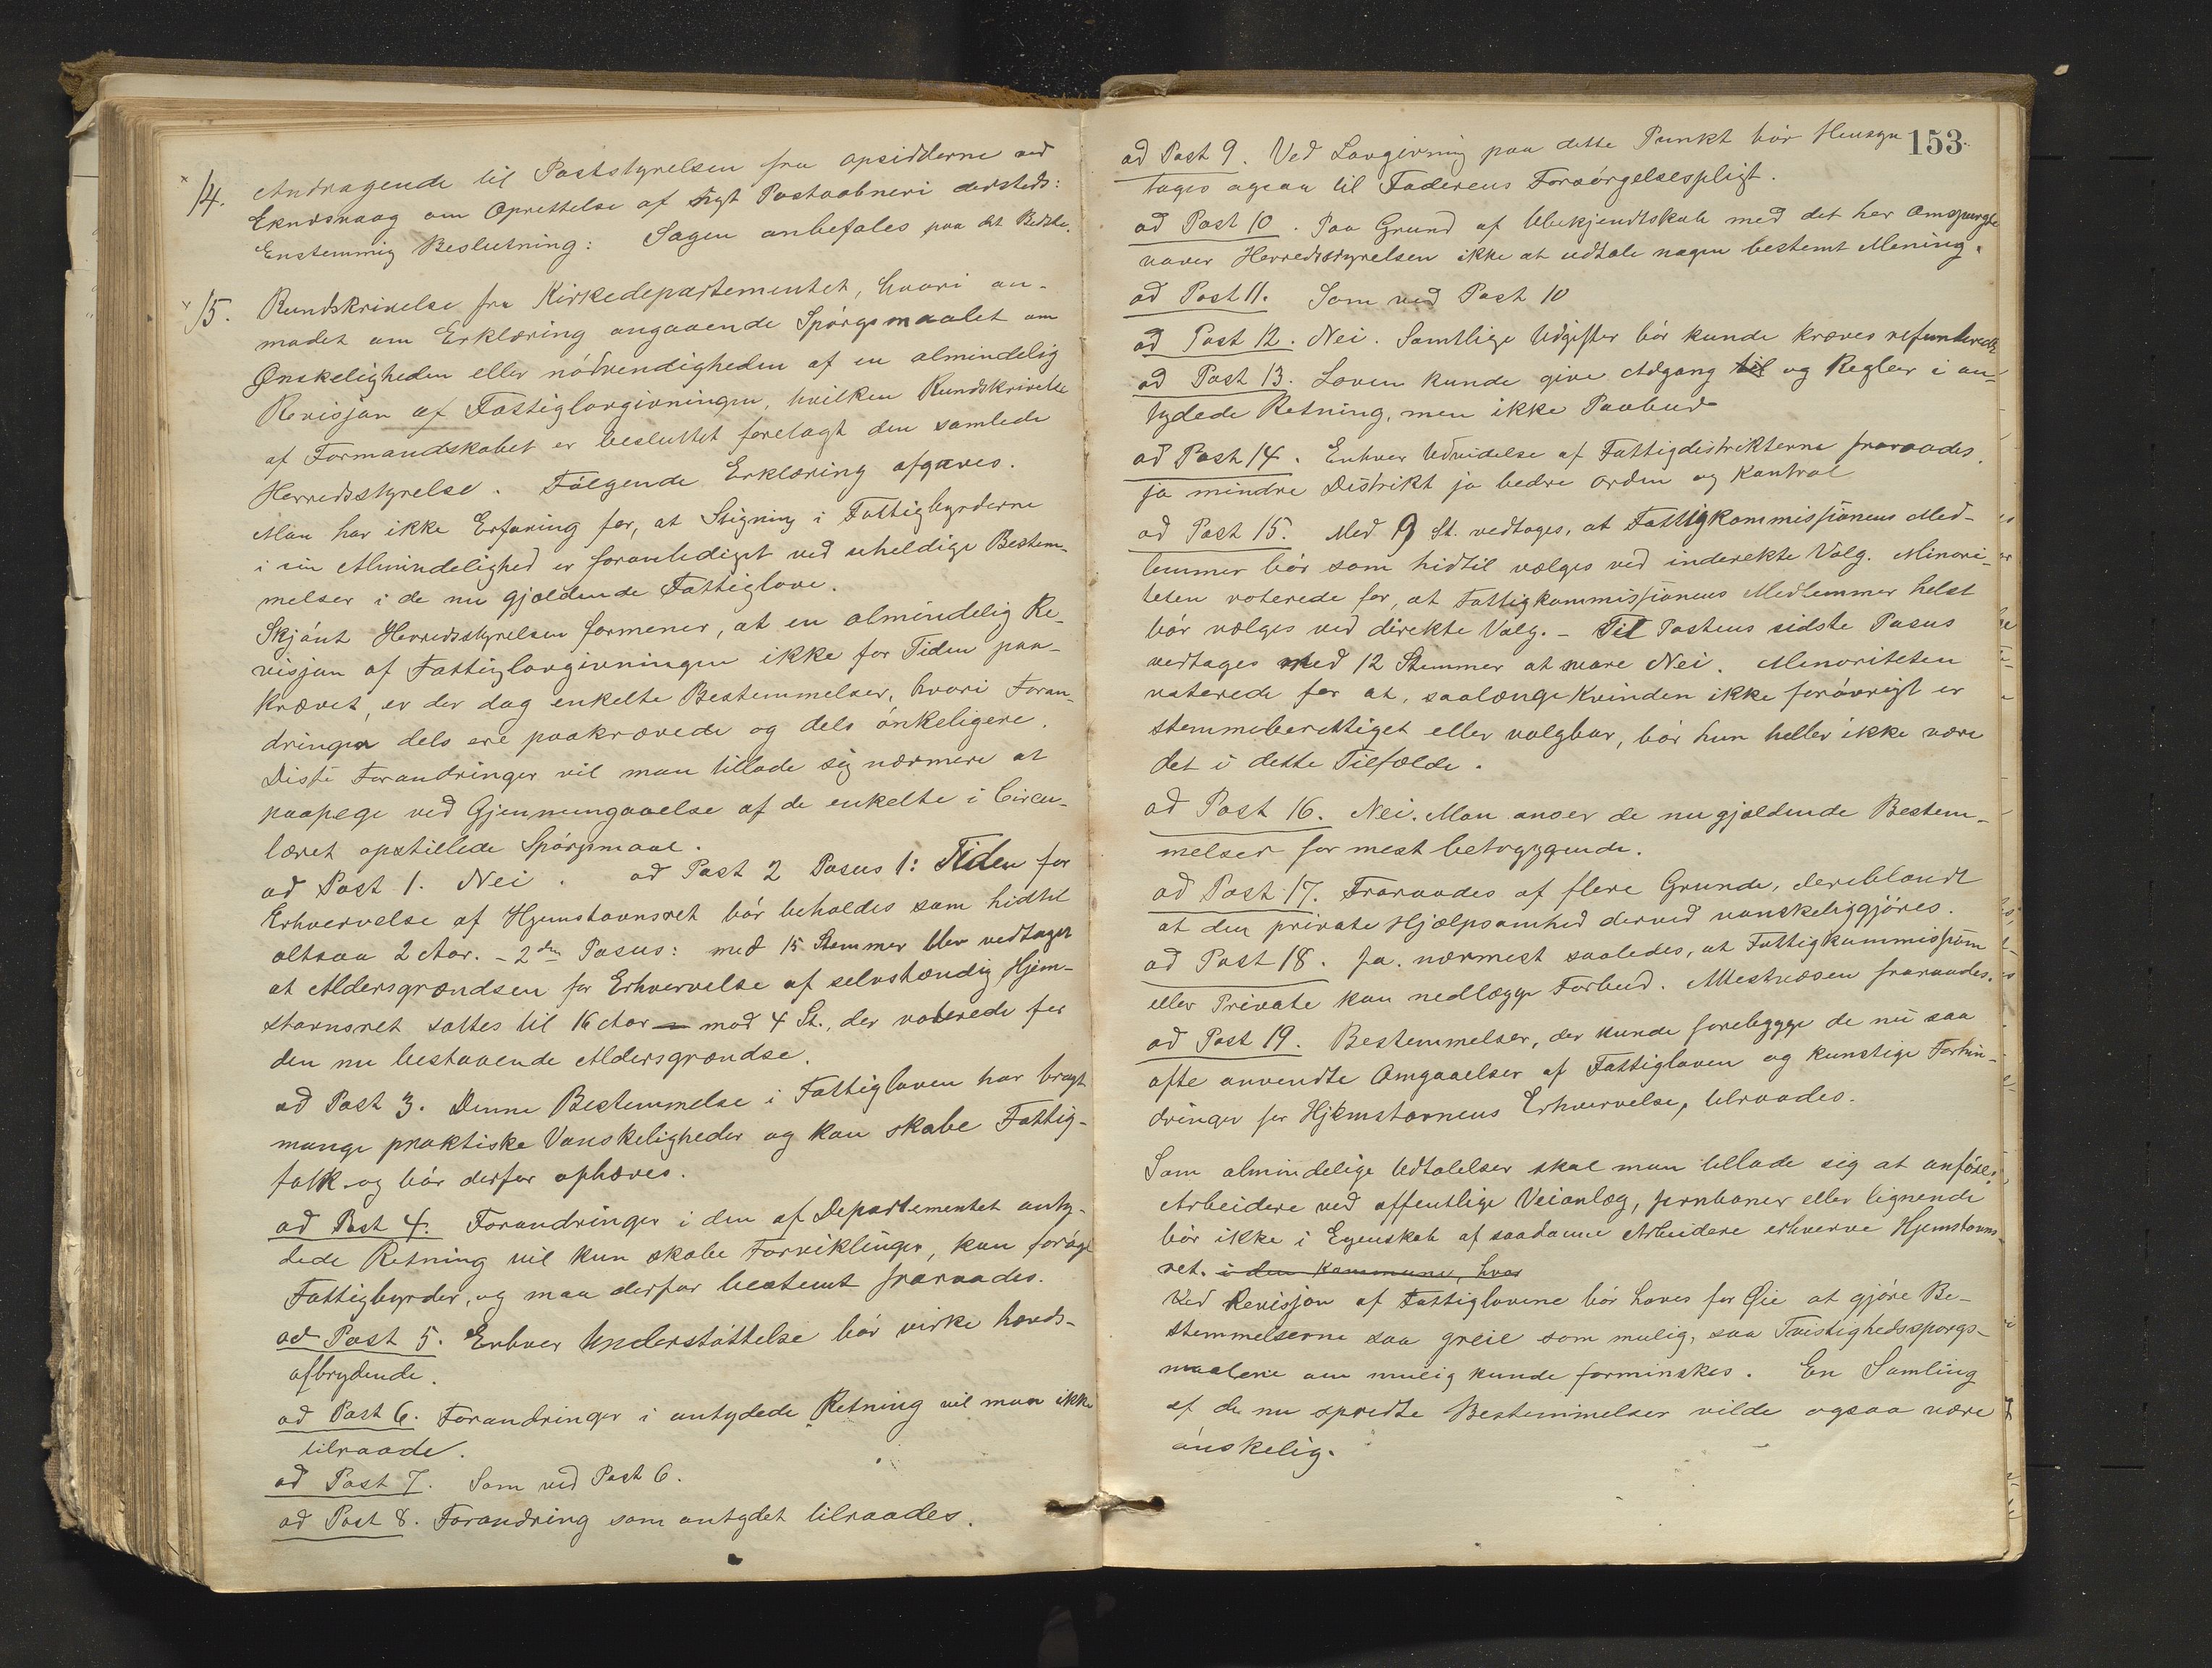 14. Andragende til Poststyrelsen fra opsidderne ved
Eknæsvaag om Oprettelse af nyt Postaabneri dersteds:
Enstemmig Beslutning: Sagen anbefales paa det Bedste.
15. Rundskrivelse fra Kirkedepartementet, hvori an-
modet om Erklæring angaaende Spørgsmaalet om
Ønskeligheden eller nødvendigheden af en almindelig
Revisjon af Fattiglovgivningen, hvilken Rundskrivelse
af Formandskabet er besluttet forelagt den samlede
Herredsstyrelse. Følgende Erklæring afgaves.
Man har ikke Erfaring for, at Stigning i Fattigbyrderne
i sin Almindelighed er foranlediget ved uheldige Bestem-
melser i de nu gjældende Fattiglove.
Skjønt Herredsstyrelsen formener, at en almindelig Re-
visjon af Fattiglovgivningen ikke for Tiden paa-
krævet, er der dog enkelte Bestemmelser, hvori Foran-
dringer dels ere paakrævede og dels ønkeligere.
Disse Forandringer vil man tillade sig nærmere at
paapege ved Gjennemgaaelse af de enkelte i Circu-
læret opstillede Spørgsmaal.
ad Post 1. Nei. ad Post 2 Pasus 1: Tiden for
Erhvervelse af Hjemstavnsret bør beholdes som hidtil
altsaa 2 Aar. - 2den Pasus: med 15 Stemmer blev vedtaget
at Aldersgrændsen for Erhvervelse af selvstændig Hjem-
stavnsret sattes til 16 Aar mod 4 St., der voterede for
den nu bestaaende Aldersgrændse.
ad Post 3. Denne Bestemmelse i Fattigloven har bragt
mange praktiske Vanskeligheder og kan skabe Fattig-
folk og bør derfor ophæves.
ad Post 4. Forandringer i den af Departementet anty-
dede Retning vil kun skabe Forviklinger, kan forøge
Fattigbyrder, og maa derfor bestemt fraraades.
ad Post 5. Enhver Understøttelse bør virke hævds-
afbrydende.
ad Post 6. Forandringer i antydede Retning vil man ikke
tilraade.
ad Post 7. Som ved Post 6.
ad Post 8. Forandring som antydet tilraades.
153.
ad Post 9. Ved Lovgivning paa dette Punkt bør Hensyn
tages ogsaa til Faderens Forsørgelsespligt.
ad Post 10. Paa Grund af Ubekjendtskab med det her Omspurgte
vover Herredsstyrelsen ikke at udtale nogen bestemt Mening.
ad Post 11. Som ved Post 10
ad Post 12. Nei. Samtlige Udgifter bør kunde kræves refunderede
ad Post 13. Loven kunde give Adgang til og Regler i an-
tydede Retning, men ikke Paabud
ad Post 14. Enhver Udvidelse af Fattigdistrikterne fraraades.
jo mindre Distrikt jo bedre Orden og Kontrol
ad Post 15. Med 9 St. vedtoges, at Fattigkommissionens Med-
lemmer bør som hidtil vælges ved inderekte Valg. Minori-
teten voterede for, at Fattigkommissionens Medlemmer helst
bør vælges ved direkte Valg. - Til Postens sidste Pasus
vedtages med 12 Stemmer at svare Nei. Minoriteten
voterede for at, saalænge Kvinden ikke forøvrigt er
stemmeberettiget eller valgbar, bør hun heller ikke være
det i dette Tilfælde.
ad Post 16. Nei. Man anser de nu gjældende Bestem-
melser for mest betryggende.
ad Post 17. Fraraades af flere Grunde, deriblandt
at den private Hjælpsomhed derved vanskeliggjøres.
ad Post 18. Ja. nærmest saaledes, at Fattigkommission
eller Private kan nedlægge Forbud. Attestvæsen fraraades.
ad Post 19. Bestemmelser, der kunde forebygge de nu saa
ofte anvendte Omgaaelser af Fattigloven og kunstige Forhin-
dringer for Hjemstavnens Erhvervelse, tilraades.
Som almindelige Udtalelser skal man tillade sig at anføre:
Arbeidere ved offentlige Veianlæg, jernbaner eller lignende
bør ikke i Egenskab af saadanne Arbeidere erhverve Hjemstavns-
ret. i den Kommune, hvor
Ved Revisjon af Fattiglovene bør haves for Øie at gjøre Be-
stemmelserne saa greie som mulig, saa Tvistighedsspørgs-
maalene om mulig kunde forminskes. En Samling
af de nu spredte Bestemmelser vilde ogsaa være
ønskelig.